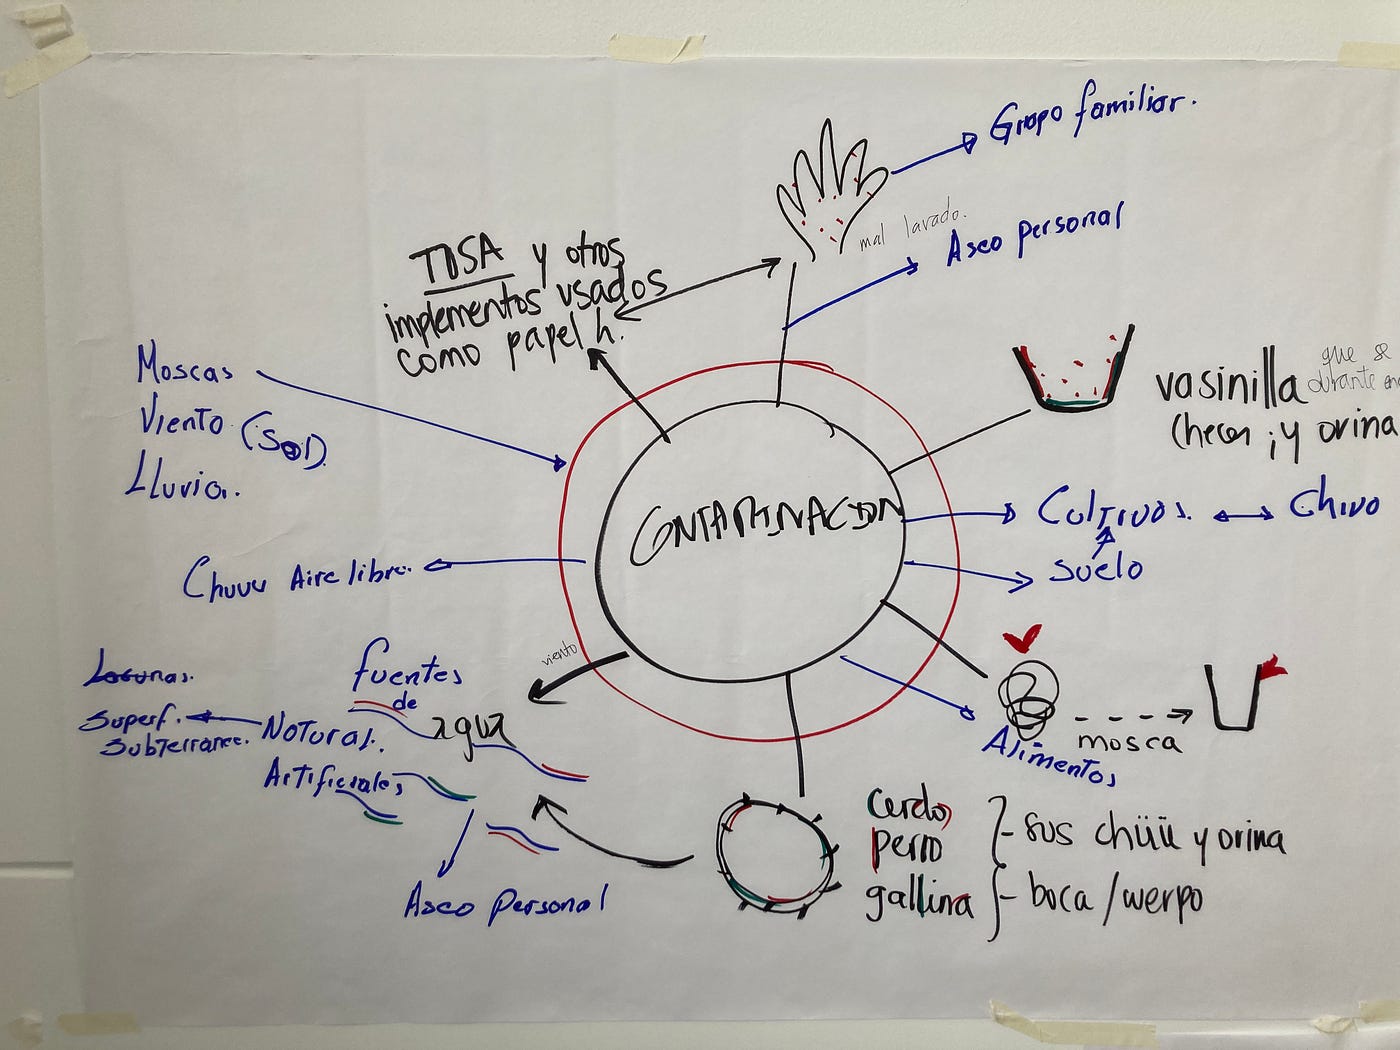 Grupo familiar.
mal lavado.
Aseo personal
TUSA y otros
implementos usados
como papel h.
Moscas
Viento (Sol)
Lluvia.
vasinilla
que se
durante
y orina
CONTAMINACION
Cultivos. Chivo
Suelo
Chuuu Aire libre.
viento
fuentes
de
agua
Lagunas.
Superf.
Subterranee.
Natural.
Artificiales
Aseo Personal
Alimentos
mosca
cerdo,
perro
gallina
- sus chüü y orina
- boca / werpo